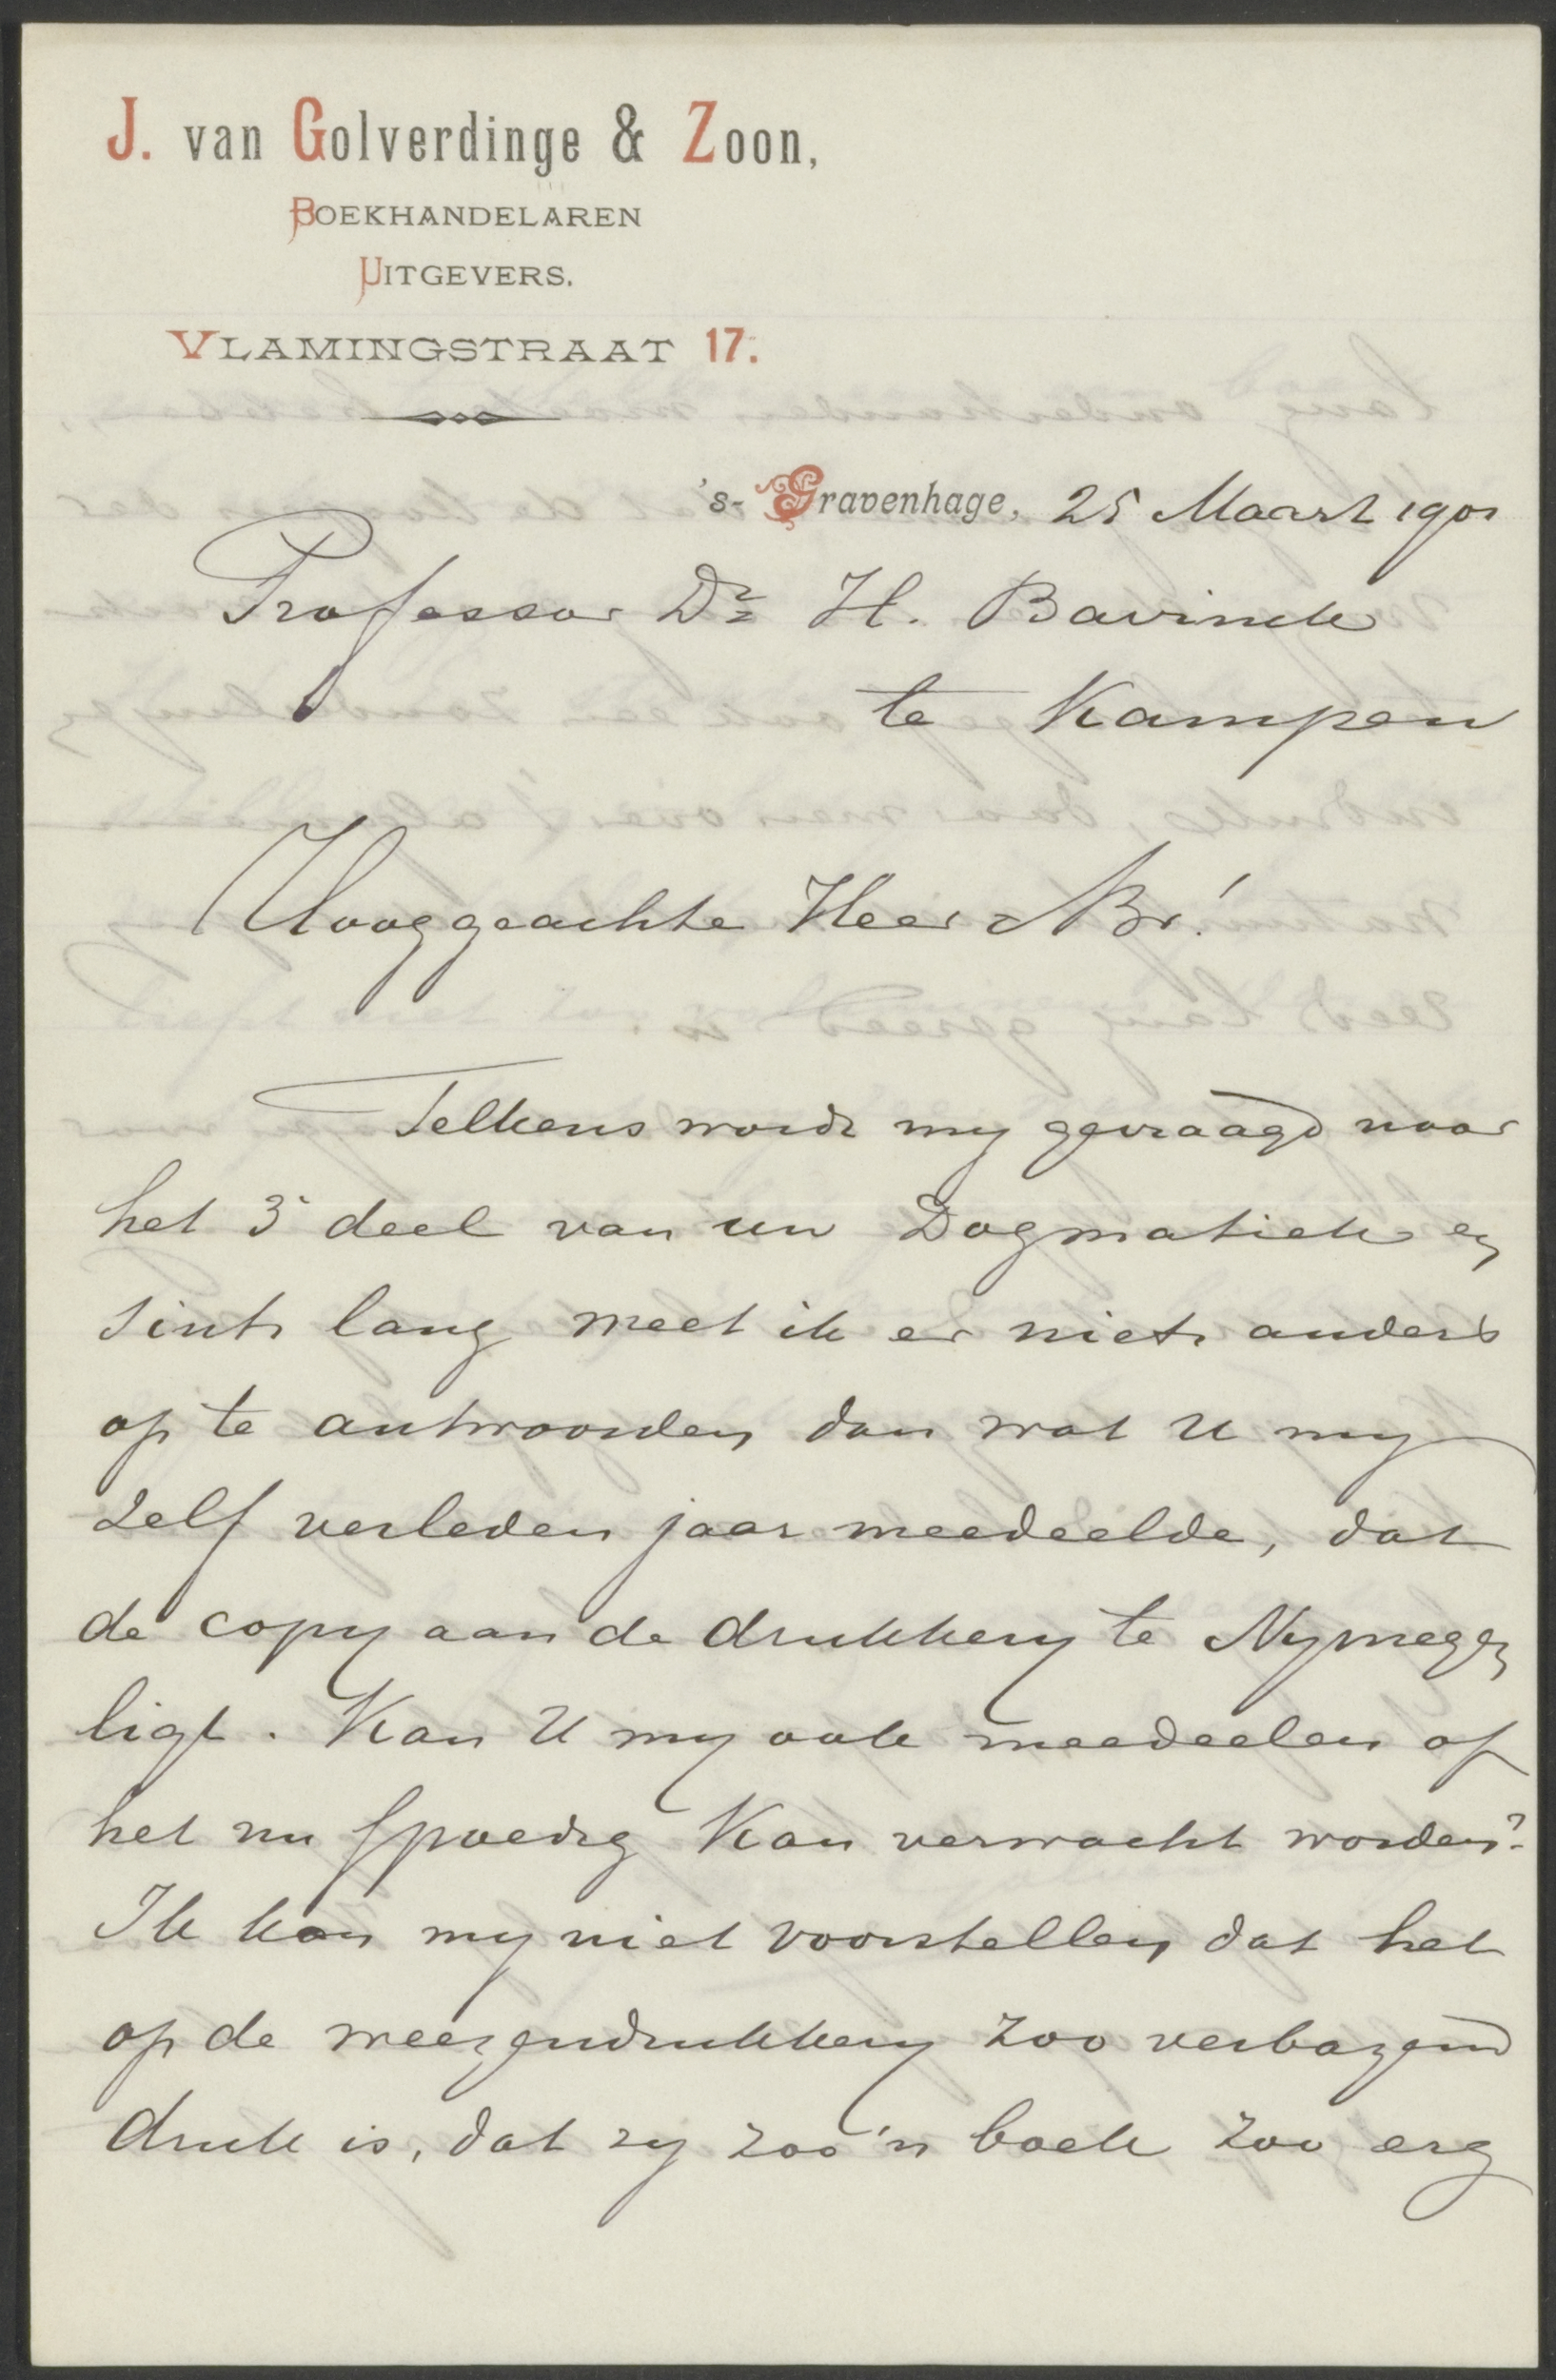 J. van Golverdinge & Zoon,
BOEKHANDELAREN
UITGEVERS.
VLAMINGSTRAAT 17.
's-Gravenhage, 25 Maart 1901
Professor Dr H. Bavinck
te Kampen
Hooggeachte Heer & Br!
Telkens wordt my gevraagd naar
het 3e deel van uw Dogmatiek en
sints lang weet ik er niets anders
op te antwoorden dan wat U my
zelf verleden jaar meedeelde, dat
de copy aan de drukkery te Nymegen
ligt. Kan U my ook meedeelen of
het nu spoedig kan verwacht worden?
Ik kan my niet voorstellen dat het
op de weezendrukkery zoo verbazend
druk is, dat zy zoo'n boek zoo erg